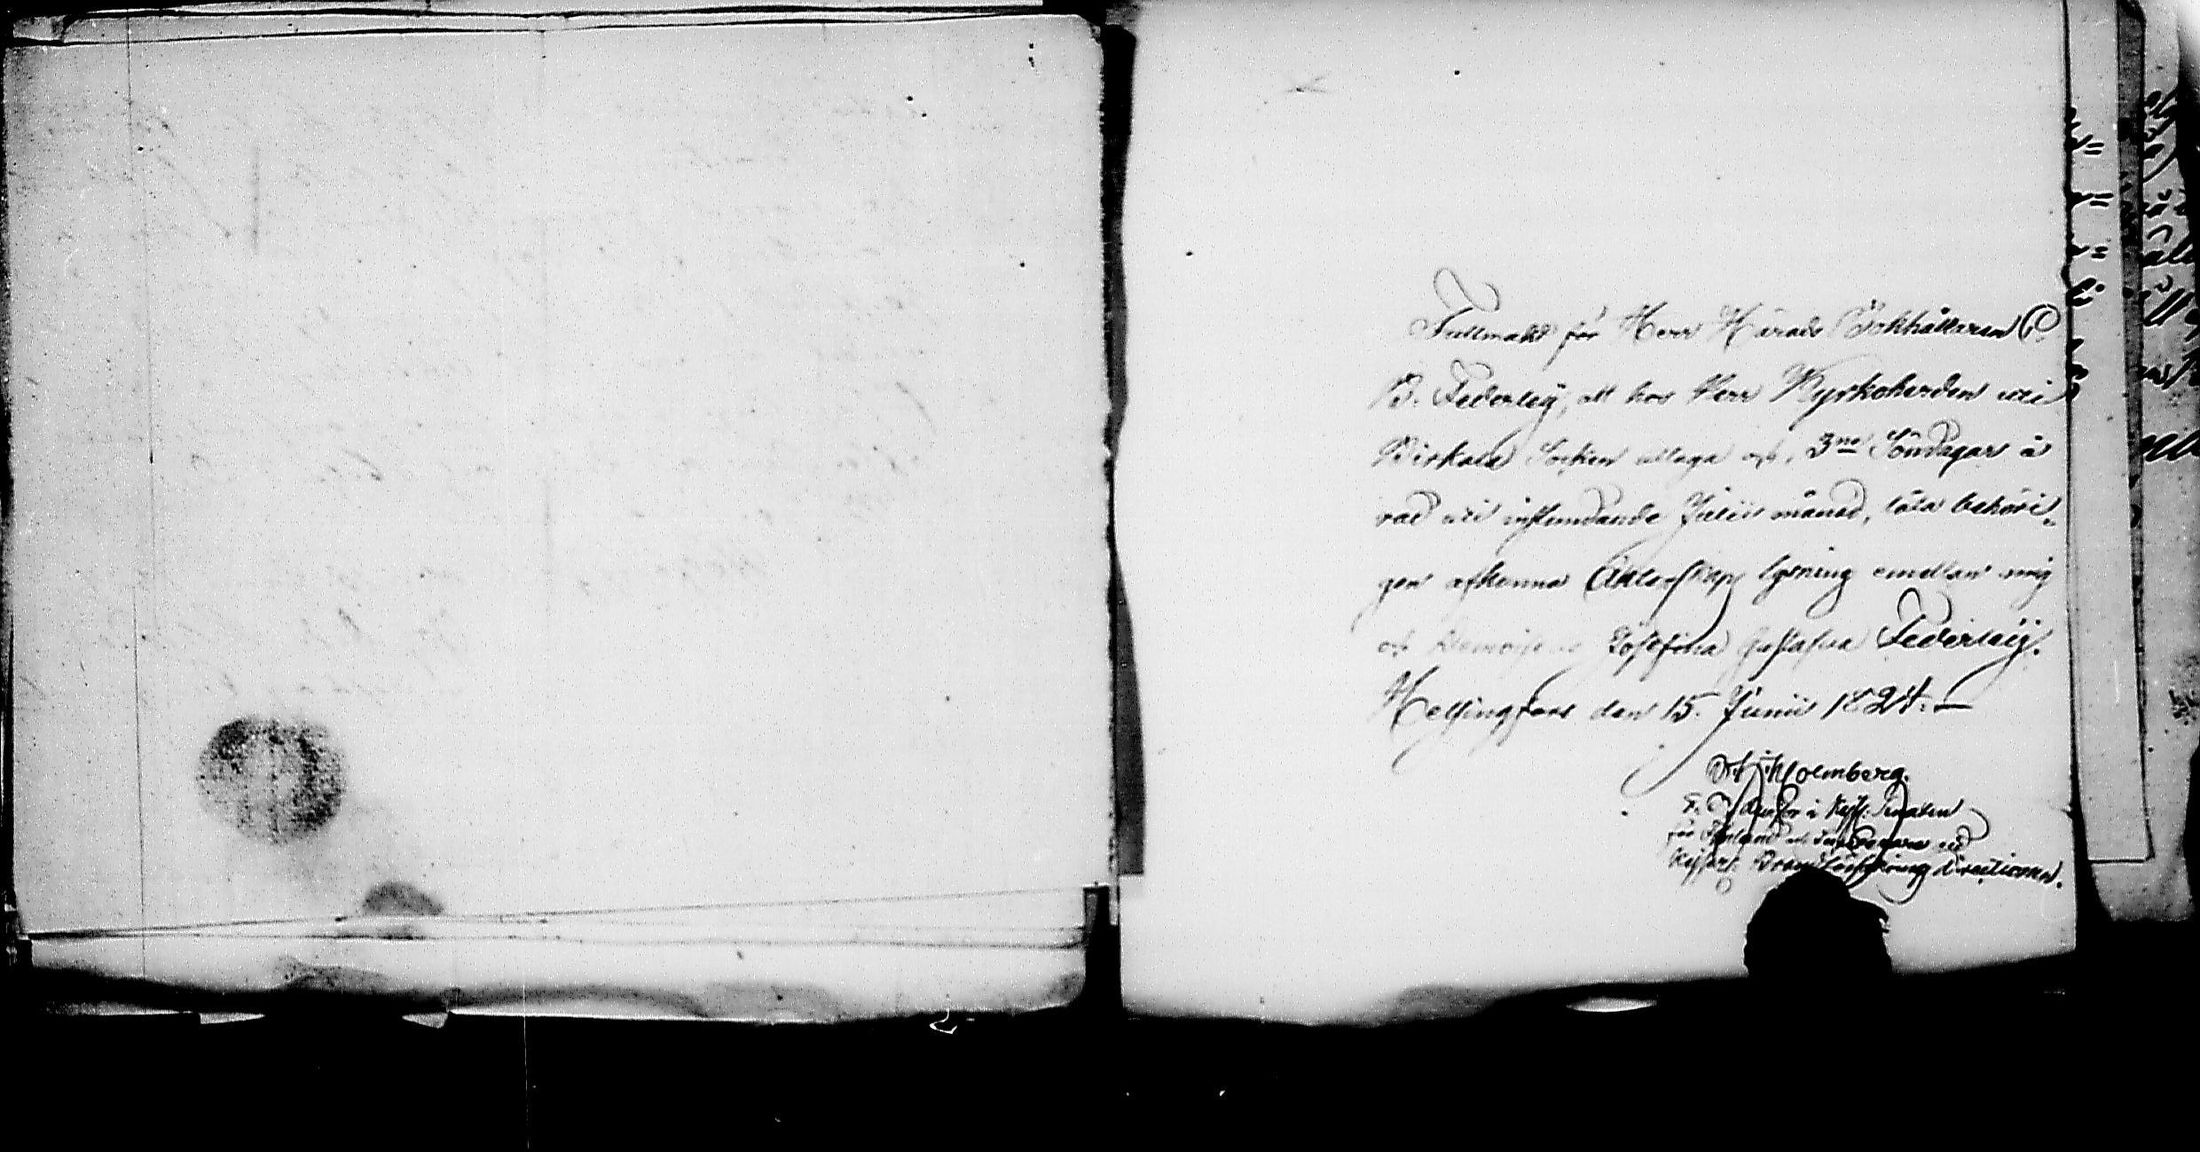 Fullmakt för Herr Härads Bokhållaren C.
B. Federleij, att hos Herr Kyrkoherden uti
Birkala Socken uttaga och, 3ne Söndagar å
rad uti instundande Julii månad, låta behöri„
gen afkunna Äktenskaps lysning emellan mig
och Demoiselle Josefina Gustafva Federleij.
Helsingfors den 15. Junii 1824.—
Holmberg.
i Kejs. Senaten
för Finland
Kejserl. Brandförsäkring directionen.